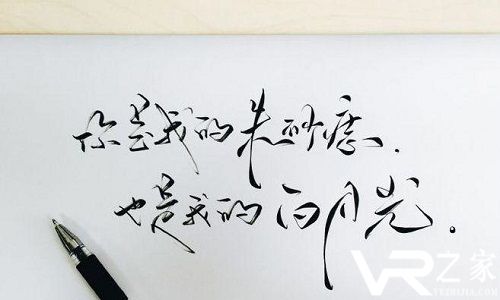 你是我的朱砂痣.
也是我的白月光.
VR之家
VRZHIJIA.COM